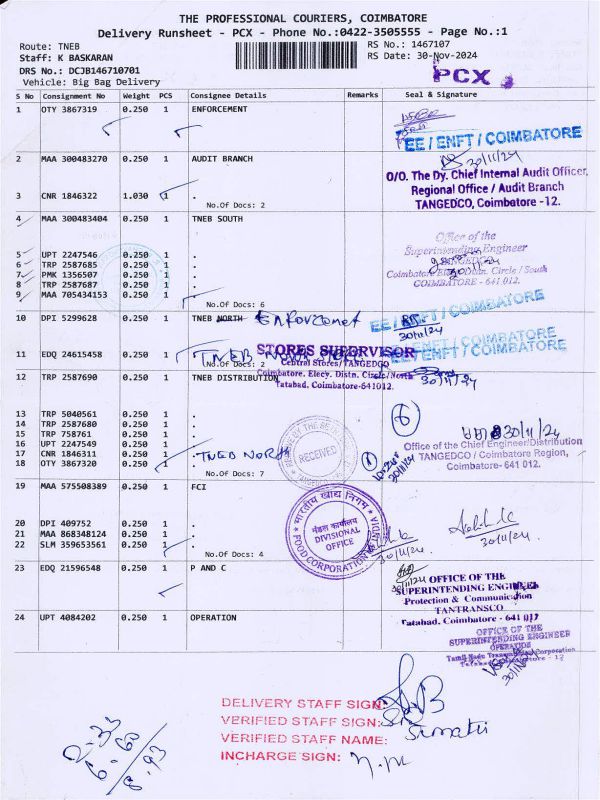 THE PROFESSIONAL COURIERS, COIMBATORE
Delivery Runsheet - PCX - Phone No.:0422-3505555 - Page No.:1
Route: TNEB
RS No.: 1467107
Staff: K BASKARAN
RS Date: 30-Nov-2024
DRS No.: DCJB146710701
Vehicle: Big Bag Delivery
PCX
S No Consignment No Weight PCS Consignee Details Remarks Seal & Signature
1 OTY 3867319 0.250 1 ENFORCEMENT
EE / ENFT / COIMBATORE
30/11/24
2 MAA 300483270 0.250 1 AUDIT BRANCH
O/O. The Dy. Chief Internal Audit Officer,
Regional Office / Audit Branch
TANGEDCO, Coimbatore -12.
3 CNR 1846322 1.030 1 .
No.Of Docs: 2
4 MAA 300483404 0.250 1 TNEB SOUTH
Office of the
Superintending Engineer
TANGEDCO
Coimbatore Elecy. Distn. Circle / South
COIMBATORE - 641 012.
5 UPT 2247546 0.250 1 .
6 TRP 2587685 0.250 1 .
7 PMK 1356507 0.250 1 .
8 TRP 2587687 0.250 1 .
9 MAA 705434153 0.250 1 .
No.Of Docs: 6
10 DPI 5299628 0.250 1 TNEB NORTH Enforcement
EE / ENFT / COIMBATORE
30/11/24
11 EDQ 24615458 0.250 1 .
TNEB North
No.Of Docs: 2
EE / ENFT / COIMBATORE
STORES SUPERVISOR
Central Stores/TANGEDCO
Coimbatore. Elecy. Distn. Circle/North
Tatabad, Coimbatore-641012.
30/11/24
12 TRP 2587690 0.250 1 TNEB DISTRIBUTION
13 TRP 5040561 0.250 1 .
14 TRP 2587680 0.250 1 .
15 TRP 2587561 0.250 1 .
16 UPT 2247549 0.250 1 .
17 CNR 1846311 0.250 1 .
18 OTY 3867320 0.250 1 .
TNEB North
No.Of Docs: 7
RECEIVED
6
30/11/24
Office of the Chief Engineer/Distribution
TANGEDCO / Coimbatore Region,
Coimbatore- 641 012.
19 MAA 575508389 0.250 1 FCI
भारतीय खाद्य निगम
मंडल कार्यालय
DIVISIONAL
OFFICE
FOOD CORPORATION OF INDIA
30/11/24
30/11/24
20 DPI 409752 0.250 1 .
21 MAA 868348124 0.250 1 .
22 SLM 359653561 0.250 1 .
No.Of Docs: 4
23 EDQ 21596548 0.250 1 P AND C
30/11/24
OFFICE OF THE
SUPERINTENDING ENGINEER
Protection & Communication
TANTRANSCO
Tatabad, Coimbatore - 641 012
24 UPT 4084202 0.250 1 OPERATION
OFFICE OF THE
SUPERINTENDING ENGINEER
OPERATION
Tamil Nadu Transmission Corporation
30/11/24
DELIVERY STAFF SIGN:
VERIFIED STAFF SIGN:
VERIFIED STAFF NAME:
INCHARGE SIGN: